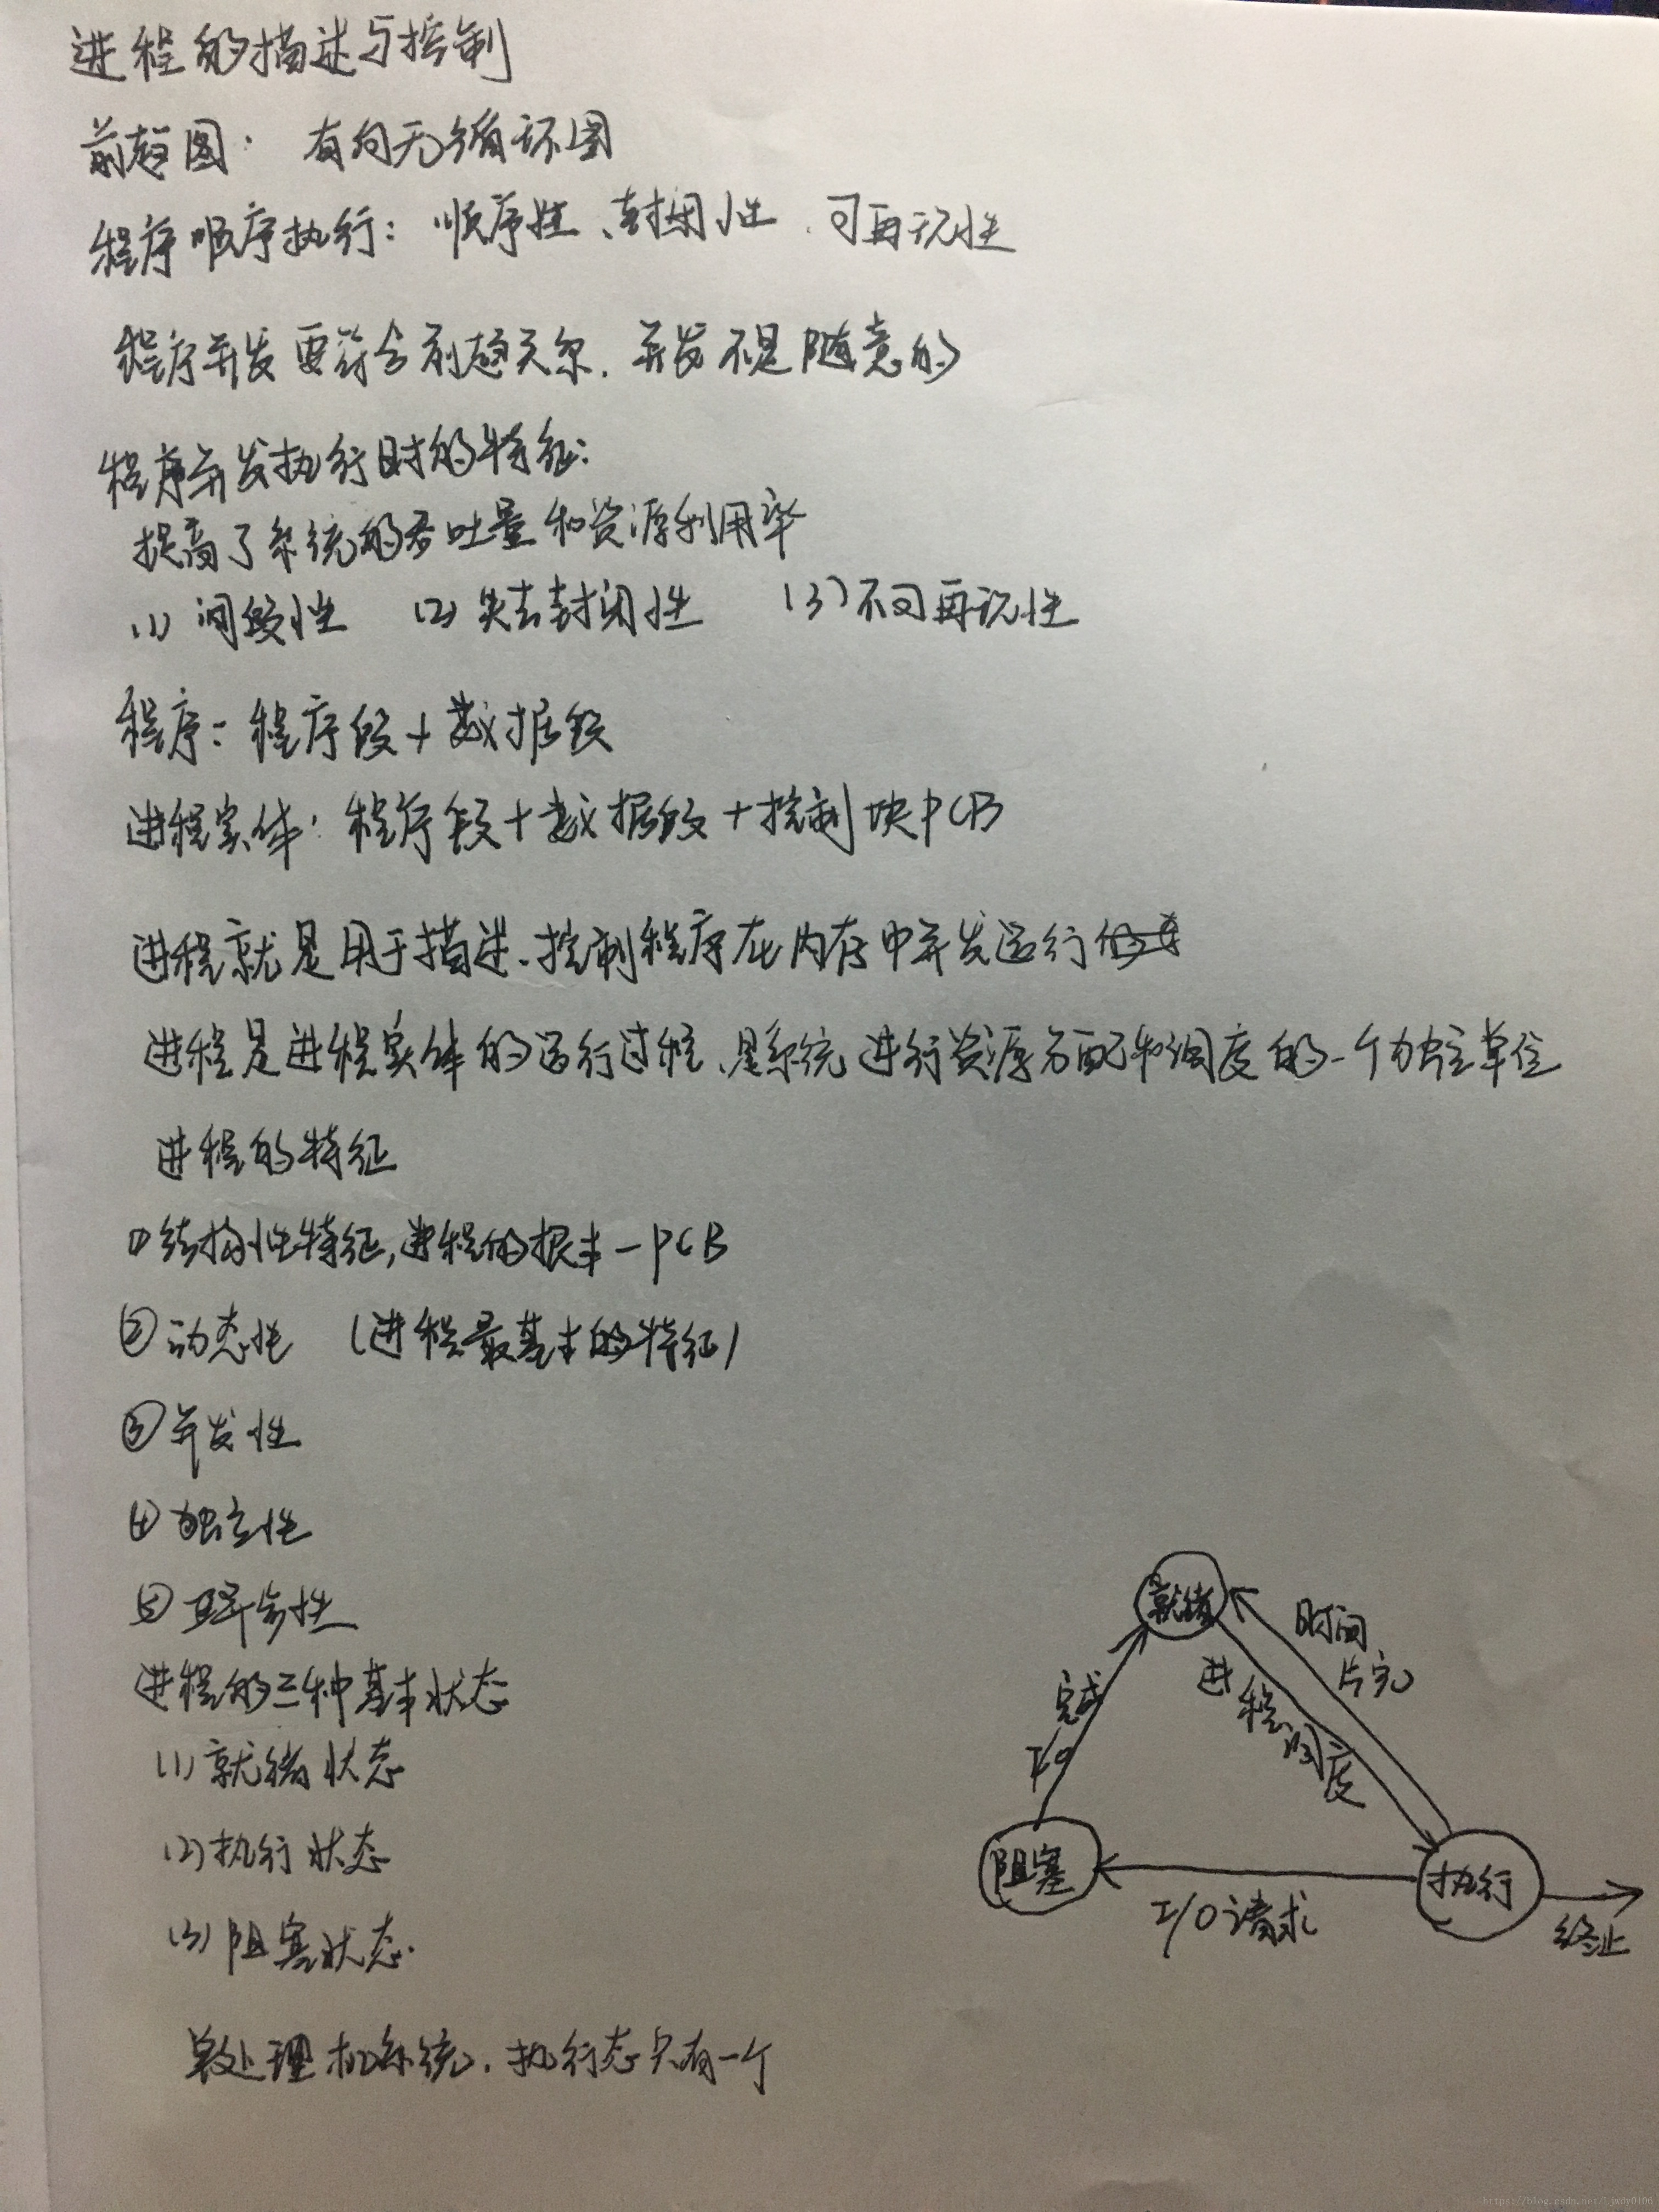 进程的描述与控制
前趋图: 有向无循环图
程序顺序执行: 顺序性、封闭性、可再现性
程序并发要符合前趋关系. 并发不是随意的
程序并发执行时的特征:
提高了系统的吞吐量和资源利用率
(1) 间断性 (2) 失去封闭性 (3) 不可再现性
程序: 程序段+数据段
进程实体: 程序段+数据段+控制块PCB
进程就是用于描述、控制程序在内存中并发运行
进程是进程实体的运行过程、是系统进行资源分配和调度的一个独立单位
进程的特征
①结构性特征,进程的根本-PCB
②动态性 (进程最基本的特征)
③并发性
④独立性
⑤异步性
进程的三种基本状态
(1)就绪状态
(2)执行状态
(3)阻塞状态.
单处理机系统, 执行态只有一个
就绪
时间
片完
进程调度
I/O完成
阻塞
I/O请求
执行
终止
https://blog.csdn.net/Ljwdy0106